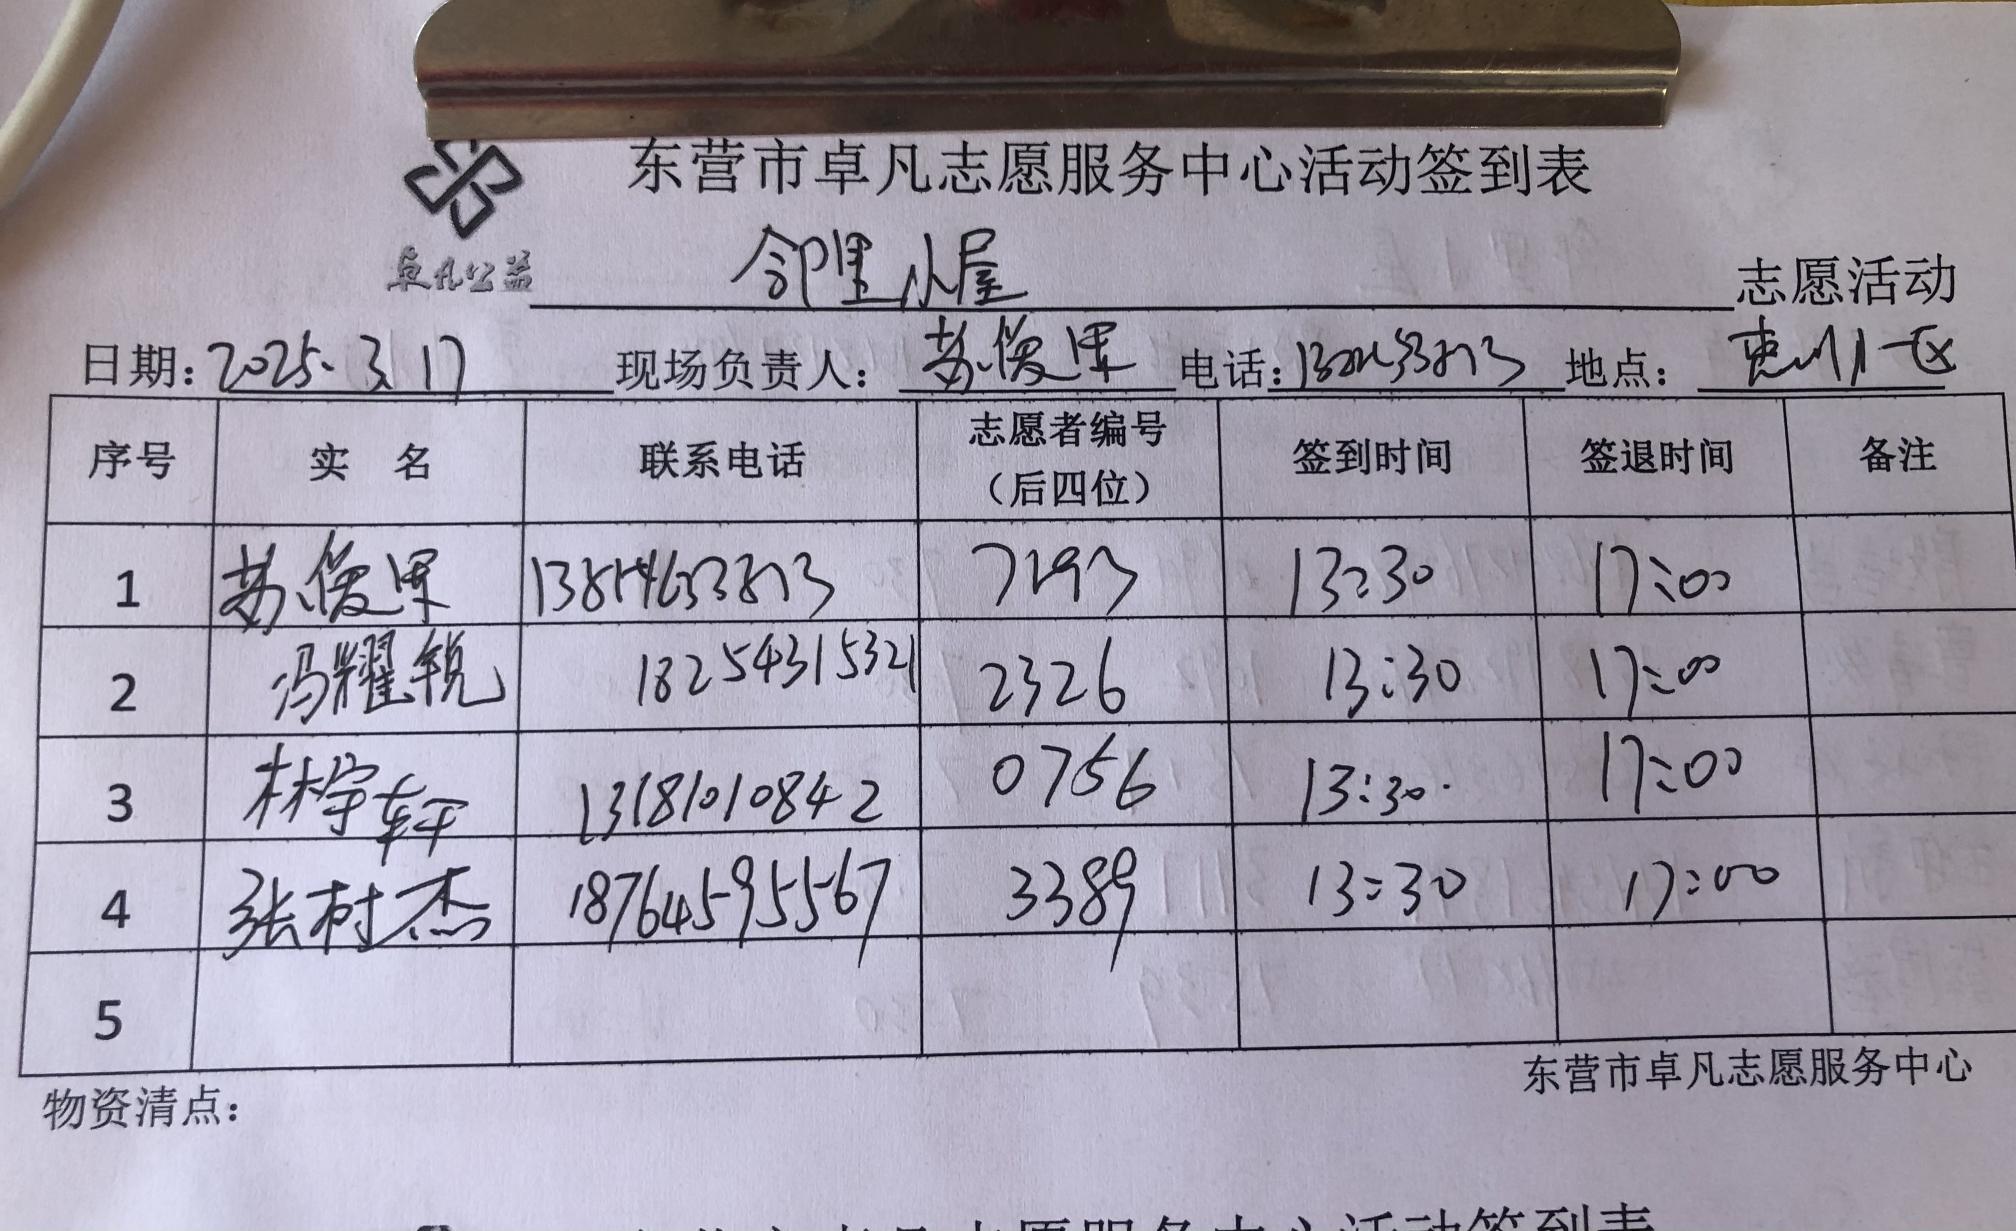 东营市卓凡志愿服务中心活动签到表
卓凡公益
邻里小屋 志愿活动
日期：2025.3.17 现场负责人：苏俊果 电话： 地点：惠州小区
序号 实 名 联系电话 志愿者编号（后四位） 签到时间 签退时间 备注
1 苏俊果 7193 13:30 17:00
2 冯耀锐 18254315321 2326 13:30 17:00
3 林宇轩 13181010842 0756 13:30 17:00
4 张树杰 18764595567 3389 13:30 17:00
5
东营市卓凡志愿服务中心
物资清点：